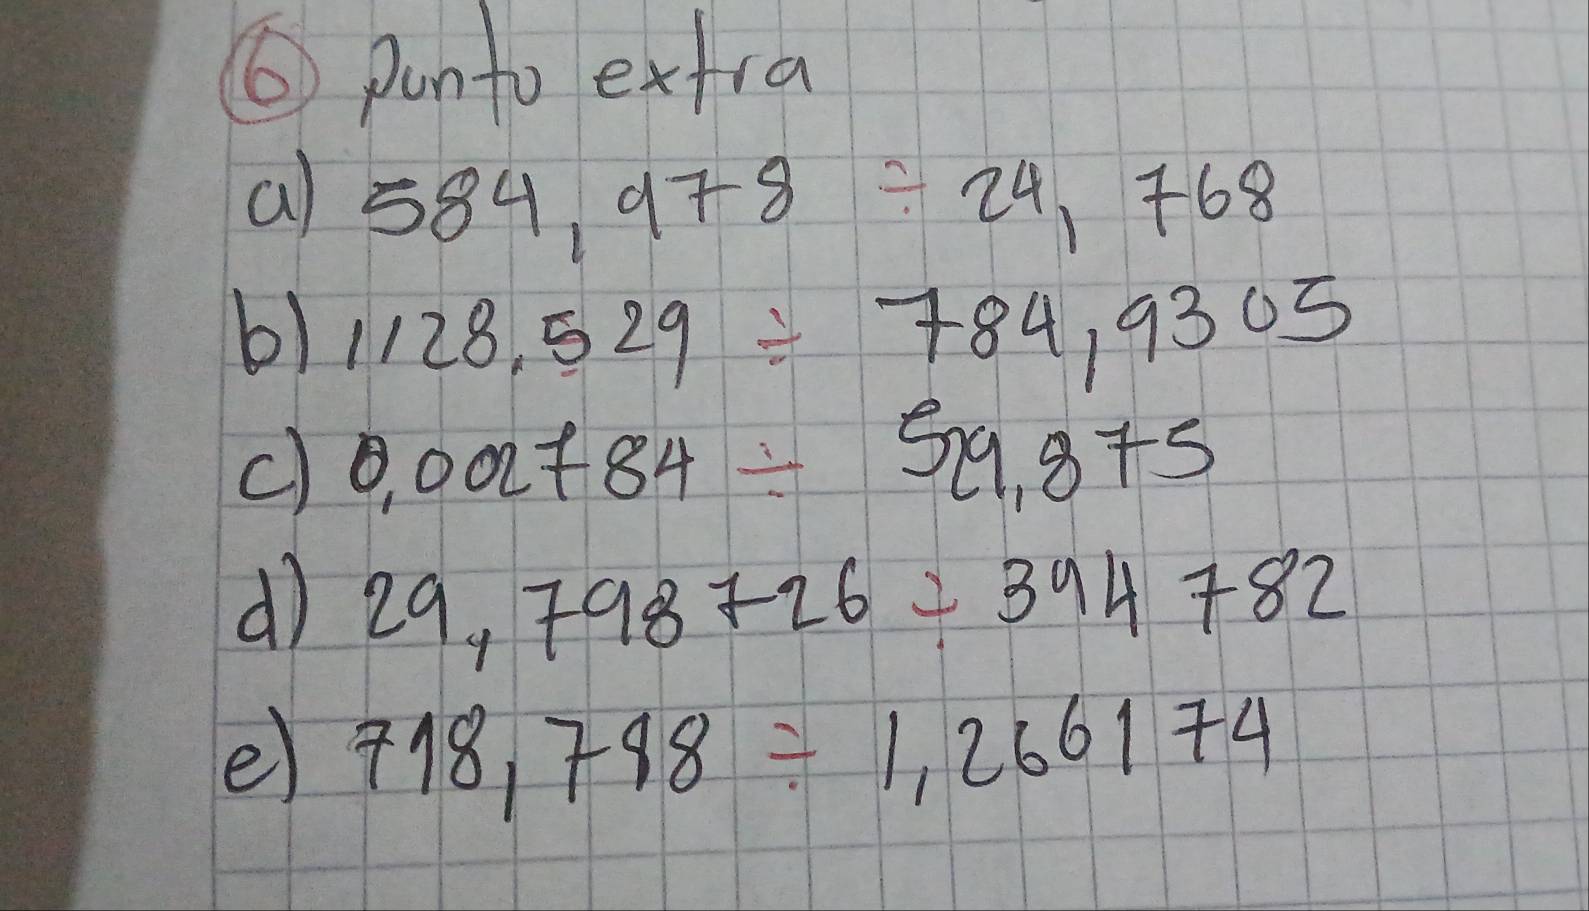 6 Punto extra
a) 584,978 ÷ 24,768
b) 1128,529 ÷ 784,9305
c) 0,002784 ÷ 529,875
d) 29,798726 ÷ 394782
e) 718,798 ÷ 1,266174